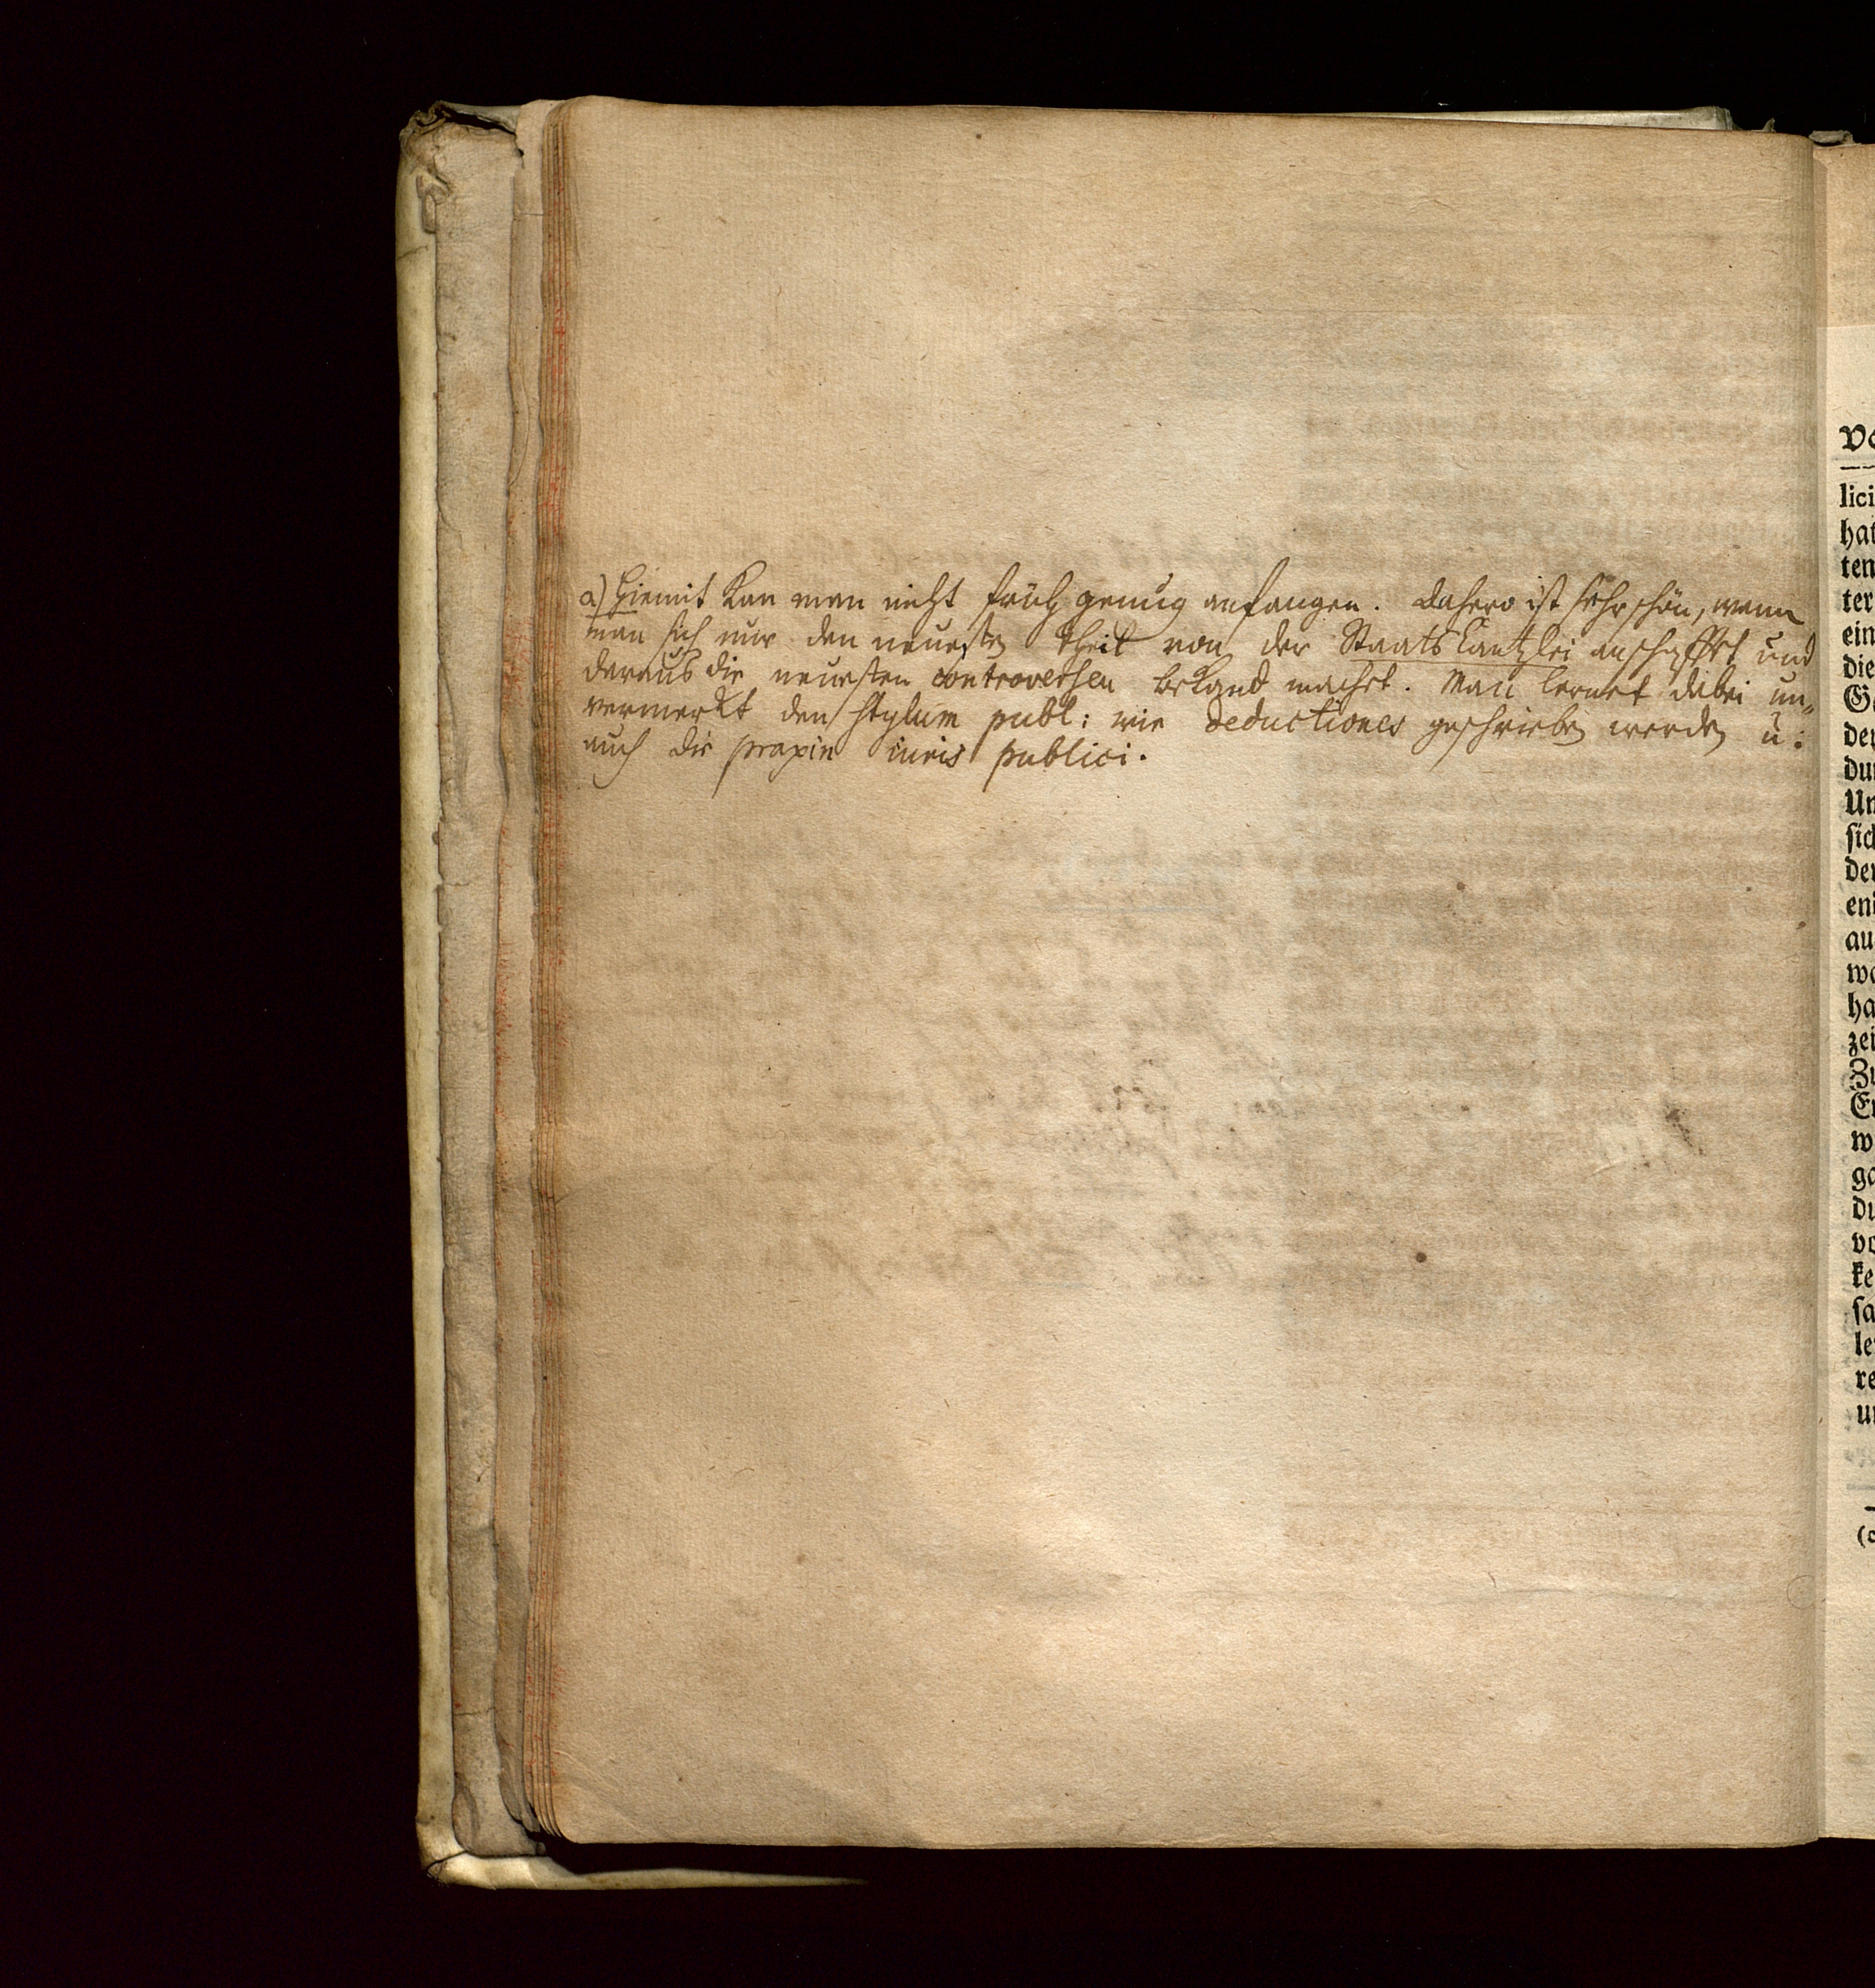 a) Hiemit kan man nicht früh genug anfangen. Dahero ist sehr schön, wenn
man sich nur den neuesten theil von der Staats Cantzlei anschaffet und
daraus die neuesten controversen bekand machet. Man lernet dabei un„
vermerkt den stylum publ: wie deductiones geschrieben werden u:
auch die praxin iuris publici.
lici
hat
ten
ter
ein
die
der
Un
sich
der
au
ha
zei
w